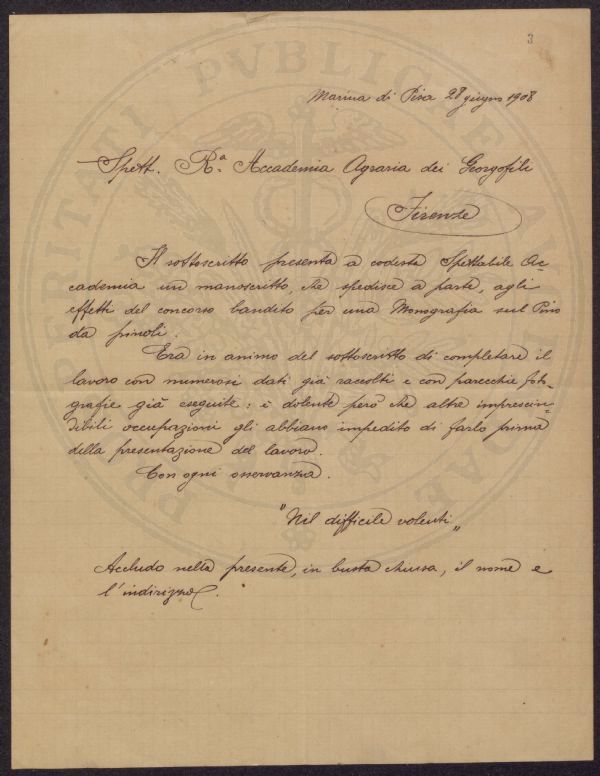 3
Marina di Pisa 28 giugno 1908
Spett. R.ª Accademia Agraria dei Georgofili
Firenze
Il sottoscritto presenta a codesta Spettabile Ac-
cademia un manoscritto, che spedisce a parte, agli
effetti del concorso bandito per una Monografia sul Pino
da pinoli.
Era in animo del sottoscritto di completare il
lavoro con numerosi dati già raccolti e con parecchie foto-
grafie già eseguite: è dolente però che altre imprescin-
dibili occupazioni gli abbiano impedito di farlo prima
della presentazione del lavoro.
Con ogni osservanza.
"Nil difficile volenti„
Accludo nella presente, in busta chiusa, il nome e
l'indirizzo.
PUBLICAE